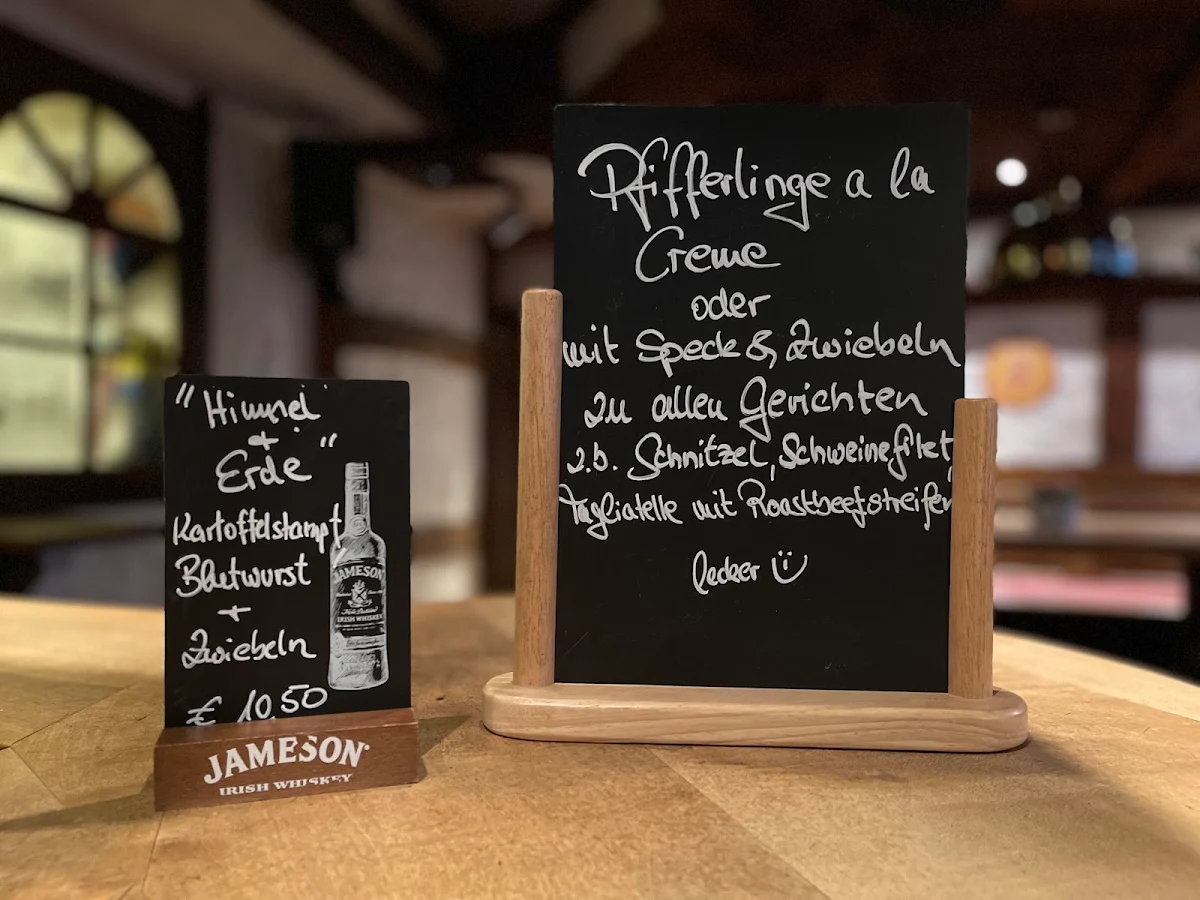 "Himmel
+
Erde"
Kartoffelstampf
Blutwurst
+
Zwiebeln
€ 10,50
JAMESON
IRISH WHISKEY
JAMESON
IRISH WHISKEY
Pfifferlinge a la
Creme
oder
mit Speck & Zwiebeln
zu allen Gerichten
z.b. Schnitzel, Schweinefilet,
Tagliatelle mit Roastbeefstreifen
lecker ü